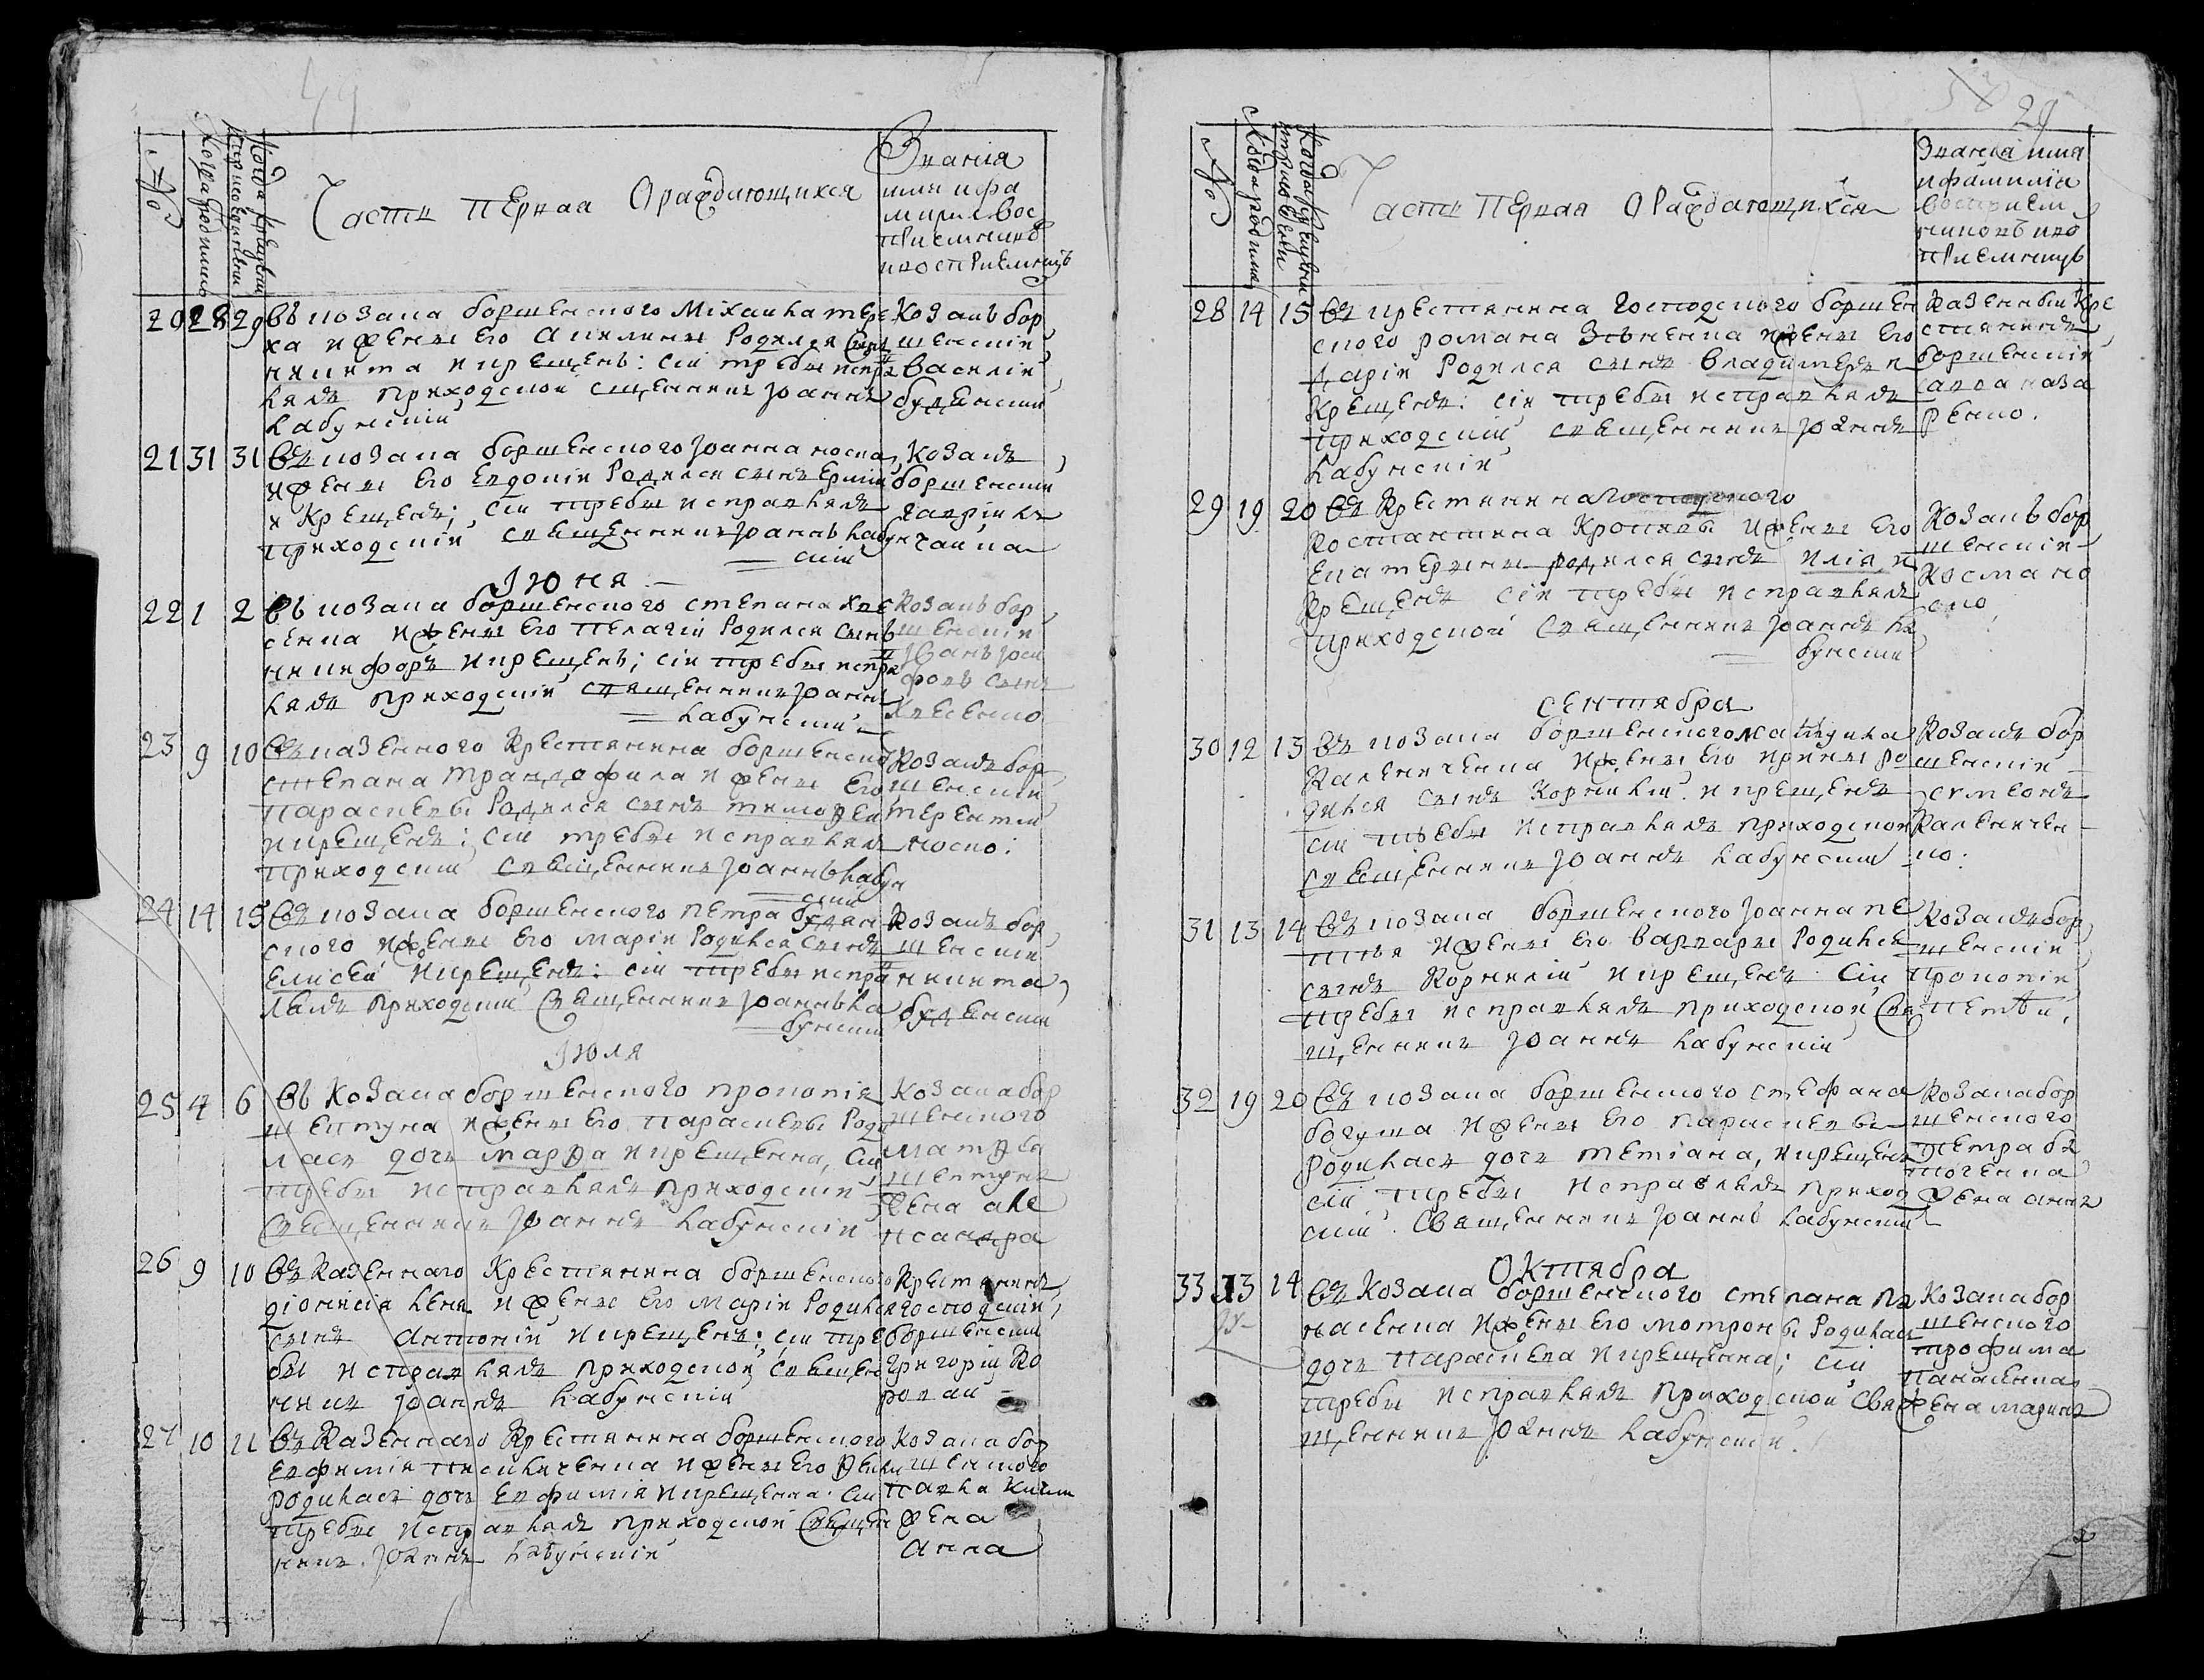 №
Когда родились
Когда крещены
Часть первая о раждающихся
Звания
имя и фа
мирия вос
приемнико
и восприемницъ
20 28 29 въ козака борщенского Михаила тере
ха и жены его Акилины родился сынъ
никита и крещенъ: сіи требы испра
влялъ приходской священникъ Іоаннъ
Лабунскій
Козакъ бор
щенскій
Василій
21 31 31 въ козака борщенского Іоанна носка
и жены его Евдокіи родился сынъ Ермій
и крещенъ; сіи требы исправлялъ
приходскій священникъ Іоаннъ Лабун
скій
Козакъ
борщенскій
гавріилъ
чайка
Іюня
22 1 2 въ козака борщенского степана хве
сенка и жены его Пелагіи родился сынъ
никифоръ и крещенъ; сіи требы испра
влялъ приходскій священникъ Іоаннъ
Лабунскій
Козакъ бор
щенскій
Іванъ Іоси
фовъ сынъ
Хвесенко
23 9 10 въ казенного крестянина борщенско
степана трандофила и жены его
параскевы родился сынъ тимофей
и крещенъ: сіи требы исправлялъ
приходскій священникъ Іоаннъ Лабун
скій
Козакъ бор
щенскій
терентій
носко:
24 14 15 въ козака борщенского петра будян
ского и жены его маріи родился сынъ
елисей и крещенъ: сіи требы испра
влялъ приходскій священникъ Іоаннъ Ла
бунскій
Козакъ бор
щенскій
никита
Іюля
25 4 6 въ козака борщенского прокопія
шептуна и жены его параскевы роди
лась дочь марфа и крещенна, сіи
требы исправлялъ приходскій
священникъ Іоаннъ Лабунскій
Козака бор
щенского
матфея
шептуна
жена але
ксандра
26 9 10 въ казенного крестянина борщенского
діонисія лены и жены его маріи родился
сынъ антоній и крещенъ; сіи тре
бы исправлялъ приходской священ
никъ Іоаннъ Лабунскій
крестянинъ
господскій
борщенскій
григорій Ко
ролай
27 10 11 въ казенного крестянина борщенского
евфимія писключенка и жены его феклы
родилась дочь евфимія и крещенна: сіи
требы исправлялъ приходской священ
никъ Іоаннъ Лабунскій
Козака бор
щенского
павла
жена
анна
29
№
Когда родились
Когда крещены
Часть первая о раждающихся
Званія имя
и фамилія
восприем
никовъ и во
приемницъ
28 14 15 въ крестянина господского борщен
ского романа Зѣненка и жены его
Даріи родился сынъ владимеръ и
крещенъ: сіи требы исправлялъ
приходскій священникъ Іоаннъ
Лабунскій
Казенный кре
стянинъ
борщенскій
савва наза
ренко.
29 19 20 въ крестянина господского
Костантина Кропивы и жены его
екатерины родился сынъ илія и
крещенъ сіи требы исправлялъ
приходской священникъ Іоаннъ Ла
бунскій
Козакъ бор
щенскій
Косма но
ско
сентября
30 12 13 въ козака борщенского матѳія
Каленiченка и жены его ирины ро
дился сынъ корнилій и крещенъ
сіи требы исправлялъ приходской
священникъ Іоаннъ Лабунскій
Козакъ бор
щенскій
сумеонъ
Каленичен
ко:
31 13 14 въ козака борщенского Іоанна пе
тѣя и жены его варвары родился
сынъ Корнилій и крещенъ сіи
требы исправлялъ приходской свя
щенникъ Іоаннъ Лабунскій
Козакъ бор
щенскій
прокопій
петѣй,
32 19 20 въ козака борщенского стефана
богуша и жены его параскевы
родилась дочь тетіана, и крещен
сіи требы исправлялъ приход
скій священникъ Іоаннъ Лабунскій
Козака бор
щенского
петра бѣ
жена анна
Октября
33 13 14 въ козака борщенского степана па
насенка и жены его мотроны родилась
дочь параскева и крещенна; сіи
требы исправлялъ приходской свя
щенникъ Іоаннъ Лабунскій.
Козака бор
щенского
трофима
панасенка
жена марина